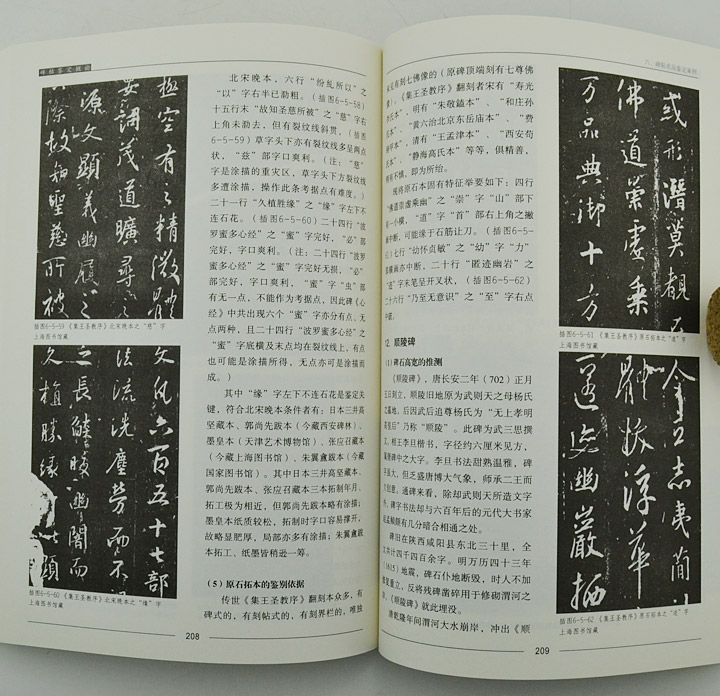 碑帖鉴定概论
北宋晚本，六行“纷乱所以”之
“以”字右半已泐粗。（插图6-5-58）
十五行末“故知圣慈所被”之“慈”字右
上角未泐去，但有裂纹线斜贯，（插图
6-5-59）草字头下亦有裂纹线多呈两点
状，“兹”部字口爽利。（注：“慈”
字是涂描的重灾区，草字头下方裂纹线
多遭涂描，操作此条考据点有难度。）
二十一行“久植胜缘”之“缘”字左下不
连石花。（插图6-5-60）二十四行“波
罗蜜多心经”之“蜜”字完好，“必”部
完好，字口爽利。（注：二十四行“波
罗蜜多心经”之“蜜”字完好无损，“必”
部完好，字口爽利，“蜜”字“虫”部
有无一点，不能作为考据点，因此碑《心
经》中共出现六个“蜜”字亦分有点、无
点两种，且二十四行“波罗蜜多心经”之
“蜜”字底横及末点均在裂纹线上，有点
也可能是涂描所得，无点亦可是涂描而
成。）
其中“缘”字左下不连石花是鉴定关
键，符合北宋晚本条件者有：日本三井高
坚藏本、郭尚先跋本（今藏西安碑林）、
墨皇本（天津艺术博物馆）、张应召藏本
（今藏上海图书馆）、朱翼盦跋本（今藏
国家图书馆）。其中日本三井高坚藏本、
郭尚先跋本、张应召藏本三本拓制年月、
拓工极为相近，但郭尚先跋本略有涂描；
墨皇本纸质较松，拓制时字口容易撑开，
故略显肥厚，局部亦多有涂描；朱翼盦跋
本拓工、纸墨皆稍逊一筹。
（5）原石拓本的鉴别依据
传世《集王圣教序》翻刻本众多，有
碑式的，有刻帖式的，有刻界栏的，唯独
插图6-5-59 《集王圣教序》北宋晚本之“慈”字
上海图书馆藏
插图6-5-60 《集王圣教序》北宋晚本之“缘”字
上海图书馆藏
208
未见有刻七佛像的（原碑顶端刻有七尊佛
像）。《集王圣教序》翻刻者宋有“寿光
李氏本”，明有“朱敬鑪本”、“和庄孙
氏本”、“黄六治北京东岳庙本”、“费
甲本”，清有“王孟津本”、“西安苟
氏本”、“静海高氏本”等等，俱精善，
有不慎，即为所给。
残将原石本固有特征举要如下：四行
“佛道崇虚乘幽”之“崇”字“山”部下
有一小横，“道”字“首”部右上角之撇
画中断，可能缘于石筋让刀。（插图6-5-
61）七行“幼怀贞敏”之“幼”字“力”
部横画亦中断，二十行“匿迹幽岩”之
“迹”字末笔呈开叉状，（插图6-5-62）
二十六行“乃至无意识”之“至”字右点
中断。
12. 顺陵碑
（1）碑石高宽的推测
《顺陵碑》，唐长安二年（702）正月
五日刻立，顺陵旧地原为武则天之母杨氏
之墓地，后因武后追尊杨氏为“无上孝明
高皇后”乃称“顺陵”。此碑为武三思撰
文，相王李旦楷书，字径约六厘米见方，
唐碑中之大字。李旦书法甜熟温雅，碑
虽大，但乏盛唐博大气象，师承二王而
欠创意。通碑来看，除却武则天所造文字
外，碑字书法却与六百年后的元代大书家
赵孟頫颇有几分暗合相通之处。
碑旧在陕西咸阳县东北三十里，全
文共计四千四百余字。明万历四十三年
（1615）地震，碑石仆地断毁，时人不加
修复重立，反将残碑凿碎用于修砌渭河之
岸，《顺陵碑》就此埋没。
清乾隆年间渭河大水崩岸，冲出《顺
插图6-5-61 《集王圣教序》原石拓本之“道”字
上海图书馆藏
插图6-5-62 《集王圣教序》原石拓本之“迹”字
上海图书馆藏
209